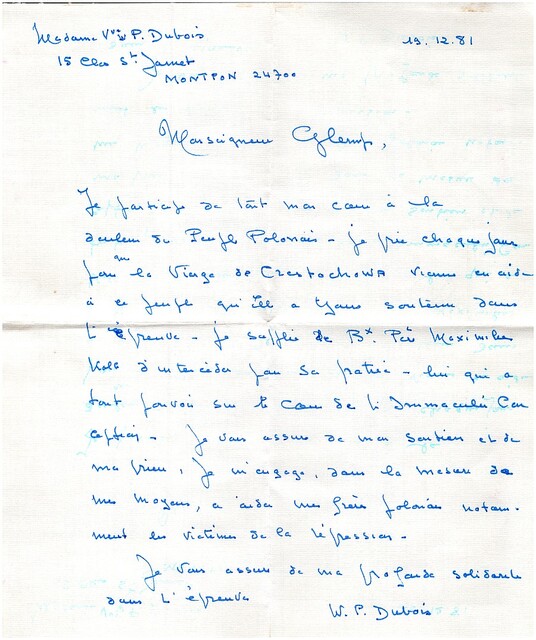 Madame Vve P. Dubois
19.12.81
15 Clos St. Jamet
MONTPON 24700
Monseigneur Glemp,
Je participe de tout mon cœur à la
douleur du Peuple Polonais - je prie chaque jour
pour que la Vierge de Czestochowa vienne en aide
à ce peuple qu'Elle a tjours soutenu dans
L'épreuve - je supplie le Bx. Père Maximilien
Kolbe d'intercéder pour sa patrie - lui qui a
tant pouvoir sur le Cœur de l'Immaculée Con
ception - Je vous assure de mon soutien et de
ma prière, je m'engage, dans la mesure de
mes moyens, a aider mes frères polonais notam-
ment les victimes de la répression -
Je vous assure de ma profonde solidarité
dans L'épreuve
W. P. Dubois